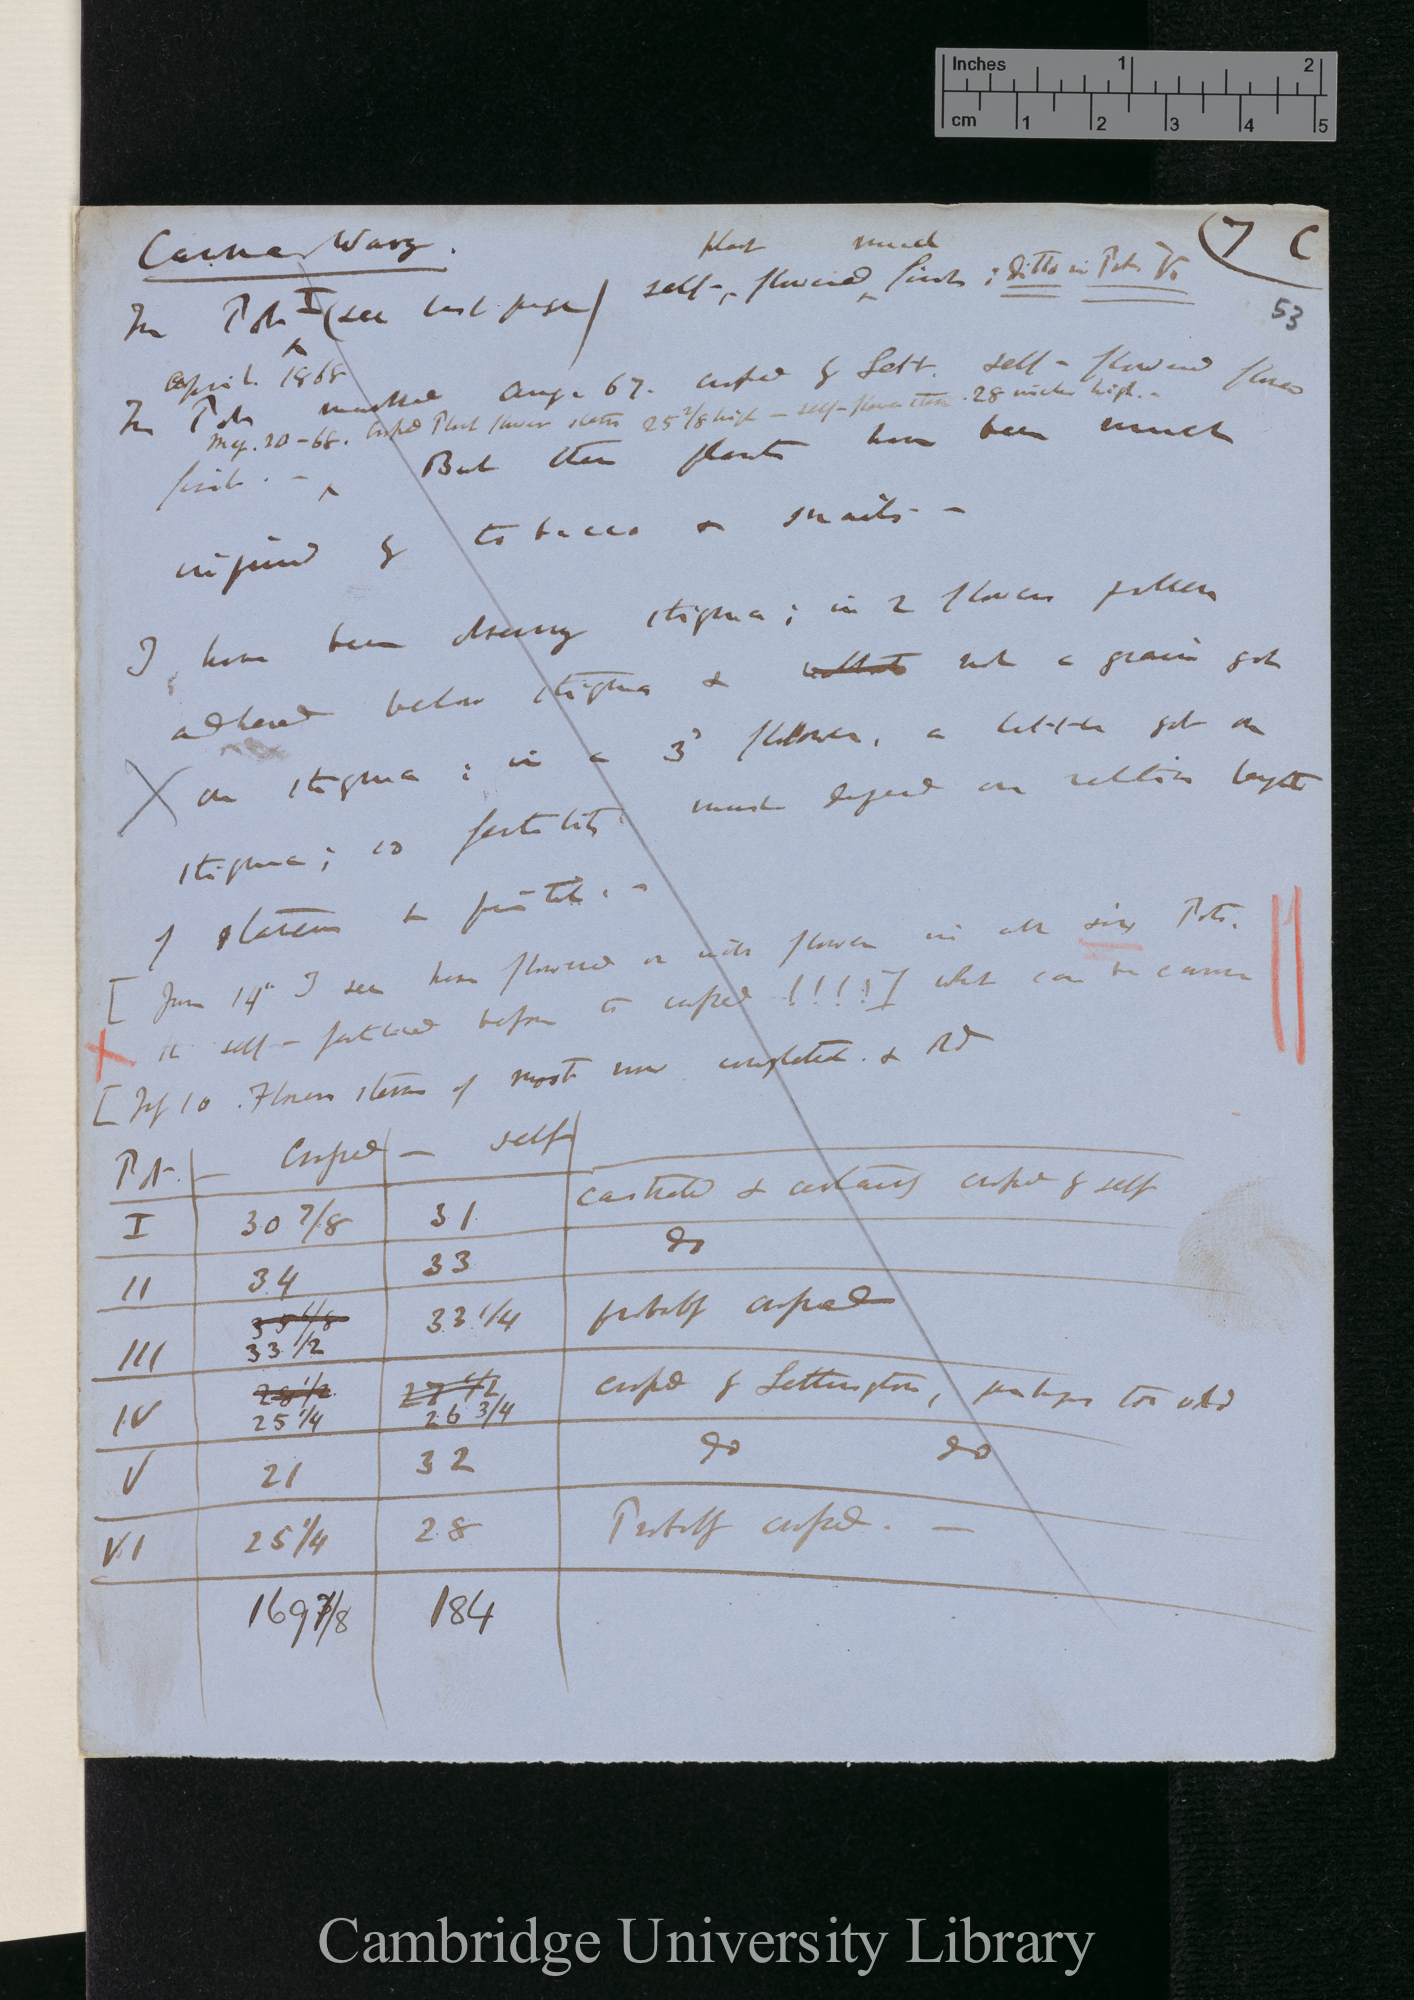 Inches 1 2
cm 1 2 3 4 5
7 C
53
Canna Warz.
plant much
In Pot I (see last page) self- flowered first; ditto in Pot V.
April 1868
In Pots marked Aug. 67. crossed by Sett. self-flowered flower
May. 20-68. Crossed Plant flower stem 25 7/8 high - self-flower stem 28 inches high. -
first. - But these plants have been much
injured by tobacco & snails -
I have been observing stigma; in 2 flowers pollen
adhered below stigma & not a grain got
on stigma; in a 3d flower, a little got on
stigma; so fertility must depend on relative length
of stamens & pistil. -
[June 14th I see have flowered or will flower in all six Pots.
the self-fertilised before the crossed !!!!] What can be cause
[July 10. Flower stems of most now completed. &
Pot. - Crossed - self
I 30 7/8 31 castrated & certainly crossed by self
II 34 33 do
35 1/8
III 33 1/2 33 1/4 probably crossed
28 1/2
IV 25 1/4 26 3/4 crossed by Settington, perhaps too old
V 21 32 do do
VI 25 1/4 28 Probably crossed. -
169 7/8 184
Cambridge University Library